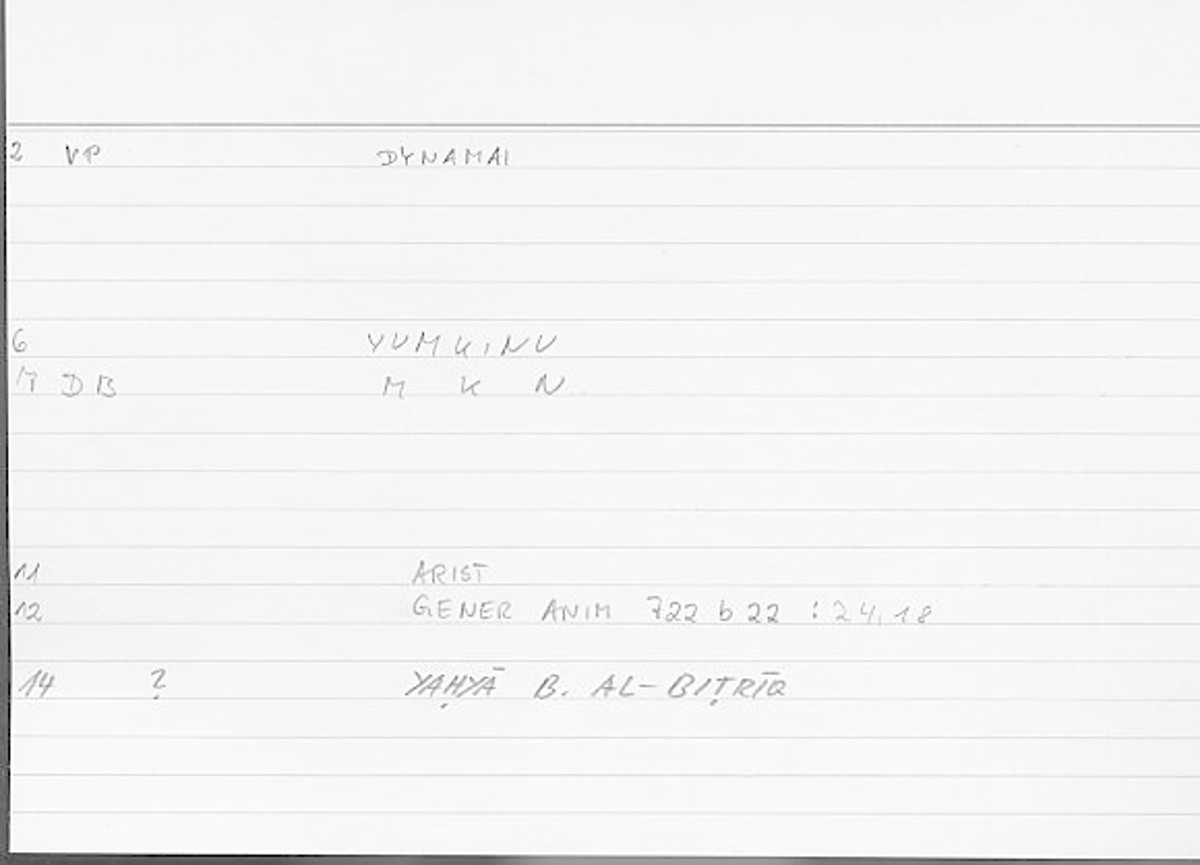 2 VP DYNAMAI
6 YUMKINU
M DB M K N
11 ARIST
12 GENER ANIM 722 b 22 : 24,18
14 ? YAḤYĀ B. AL-BIṬRĪQ